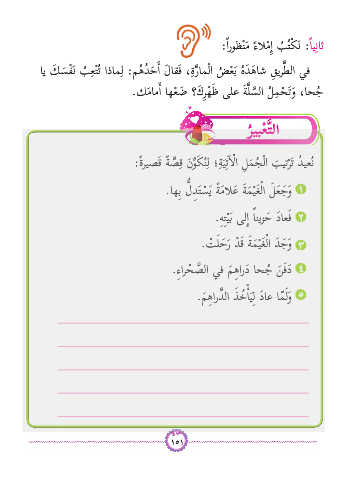 ثانِياً: نَكْتُبُ إِمْلاءً مَنْظُوراً:
في الطَّريقِ شاهَدَهُ بَعْضُ الْمارَّةِ، فَقالَ أَحَدُهُم: لِماذا تُتْعِبُ نَفْسَكَ يا
جُحا، وَتَحْمِلُ السَّلَّةَ على ظَهْرِكَ؟ ضَعْها أَمامَك.
التَّعْبيرُ
نُعيدُ تَرْتيبَ الْجُمَلِ الْآتِيَةِ؛ لِنُكَوِّنَ قِصَّةً قَصيرةً:
١ وَجَعَلَ الْغَيْمَةَ عَلامَةً يَسْتَدِلُّ بِها.
٢ فَعادَ حَزيناً إِلى بَيْتِهِ.
٣ وَجَدَ الْغَيْمَةَ قَدْ رَحَلَتْ.
٤ دَفَنَ جُحا دَراهِمَ في الصَّحْراءِ.
٥ وَلَمّا عادَ لِيَأْخُذَ الدَّراهِمَ.
١٥١